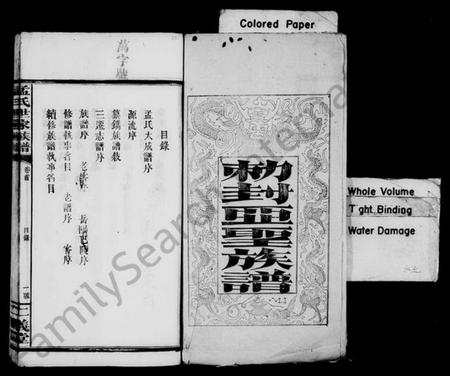 Colored Paper
Whole Volume
Tight Binding
Water Damage
勅封亞聖族譜
萬字號
目錄
孟氏大成譜序
源流序
纂鎸族譜敘
三遷志譜序
族譜序
修譜執事名目
老譜序
續修族譜執事名目
孟氏世家族譜
卷首
目錄
一
三遷堂
FamilySearch International